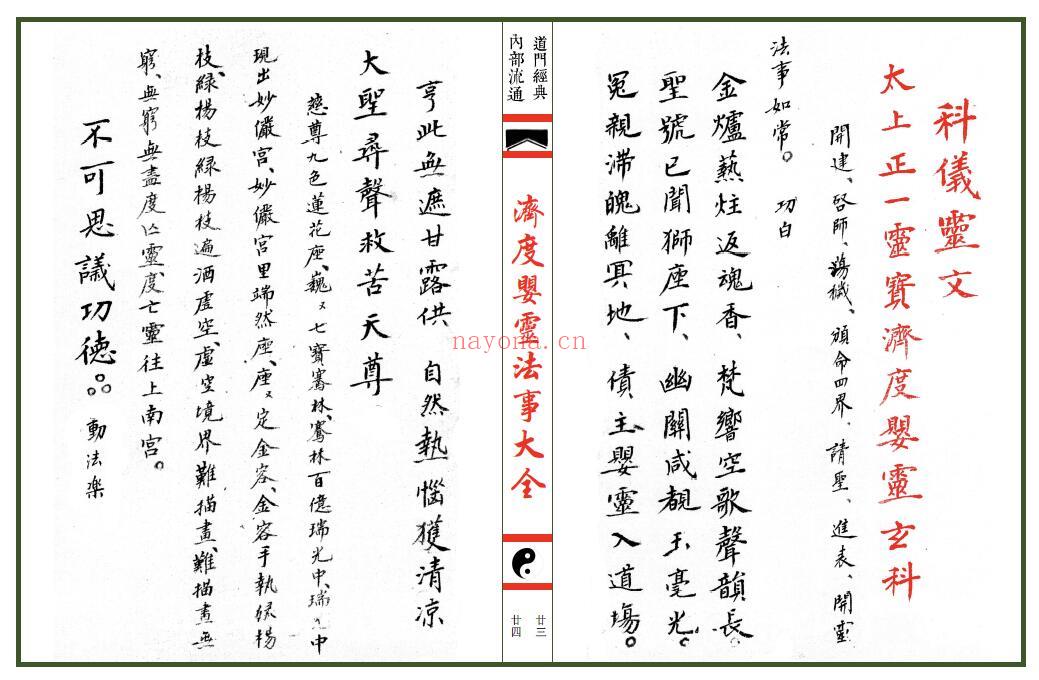 科儀靈文
太上正一靈寶濟度嬰靈玄科
開建、啓師、蕩穢、頒命四界、請聖、進表、開靈
法事如常。 功白
金爐爇炷返魂香、梵響空歌聲韻長。
聖號已聞獅座下、幽關咸覩玉毫光。
冤親滯魄離冥地、債主嬰靈入道場。
道門經典
內部流通
濟度嬰靈法事大全
廿三
廿四
亨此無遮甘露供 自然熱惱獲清凉
大聖尋聲救苦天尊
慈尊九色蓮花座、巍〻七寶騫林、騫林百億瑞光中、瑞〻中
現出妙儼宮、妙儼宮里端然座、座〻定金容、金容手執綠楊
枝、綠楊枝綠楊枝遍洒虛空、虛空境界難描畫、難描畫無
窮、無窮無盡度亡靈度、亡靈往上南宮。
不可思議功德 動法楽
nayona.cn